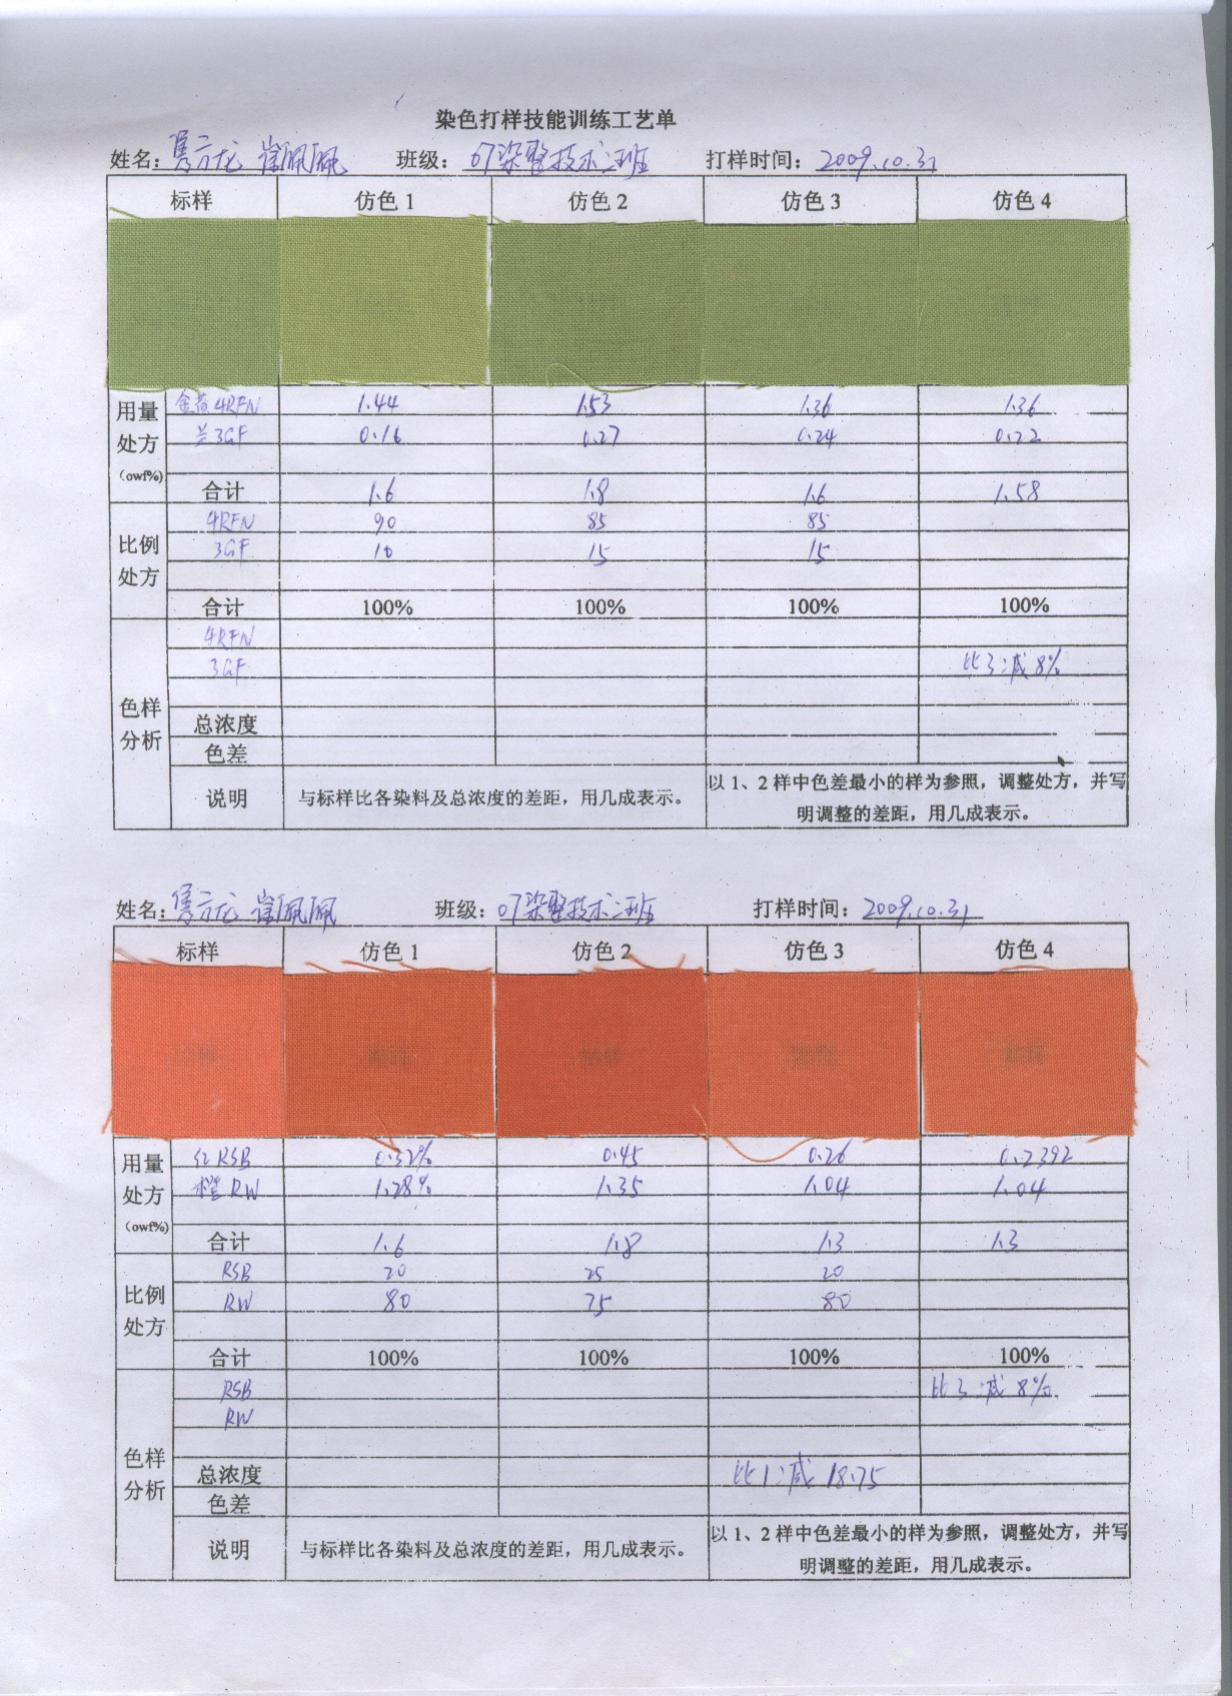 染色打样技能训练工艺单
姓名： 班级：07染整技术二班 打样时间：2009.10.31
标样 仿色1 仿色2 仿色3 仿色4
用量处方（owf%） 金黄4RFN 1.44 1.53 1.36 1.36
兰3GF 0.16 0.27 0.24 0.22
合计 1.6 1.8 1.6 1.58
比例处方 4RFN 90 85 85
3GF 10 15 15
合计 100% 100% 100% 100%
色样分析 4RFN
3GF 比3减8%
总浓度
色差
说明 与标样比各染料及总浓度的差距，用几成表示。 以1、2样中色差最小的样为参照，调整处方，并写明调整的差距，用几成表示。
姓名： 班级：07染整技术二班 打样时间：2009.10.31
标样 仿色1 仿色2 仿色3 仿色4
用量处方（owf%） 红RSB 0.32% 0.45 0.26 0.2392
橙RW 1.28% 1.35 1.04 1.04
合计 1.6 1.8 1.3 1.3
比例处方 RSB 20 25 20
RW 80 75 80
合计 100% 100% 100% 100%
色样分析 RSB 比3减8%
RW
总浓度 比1减18.75
色差
说明 与标样比各染料及总浓度的差距，用几成表示。 以1、2样中色差最小的样为参照，调整处方，并写明调整的差距，用几成表示。